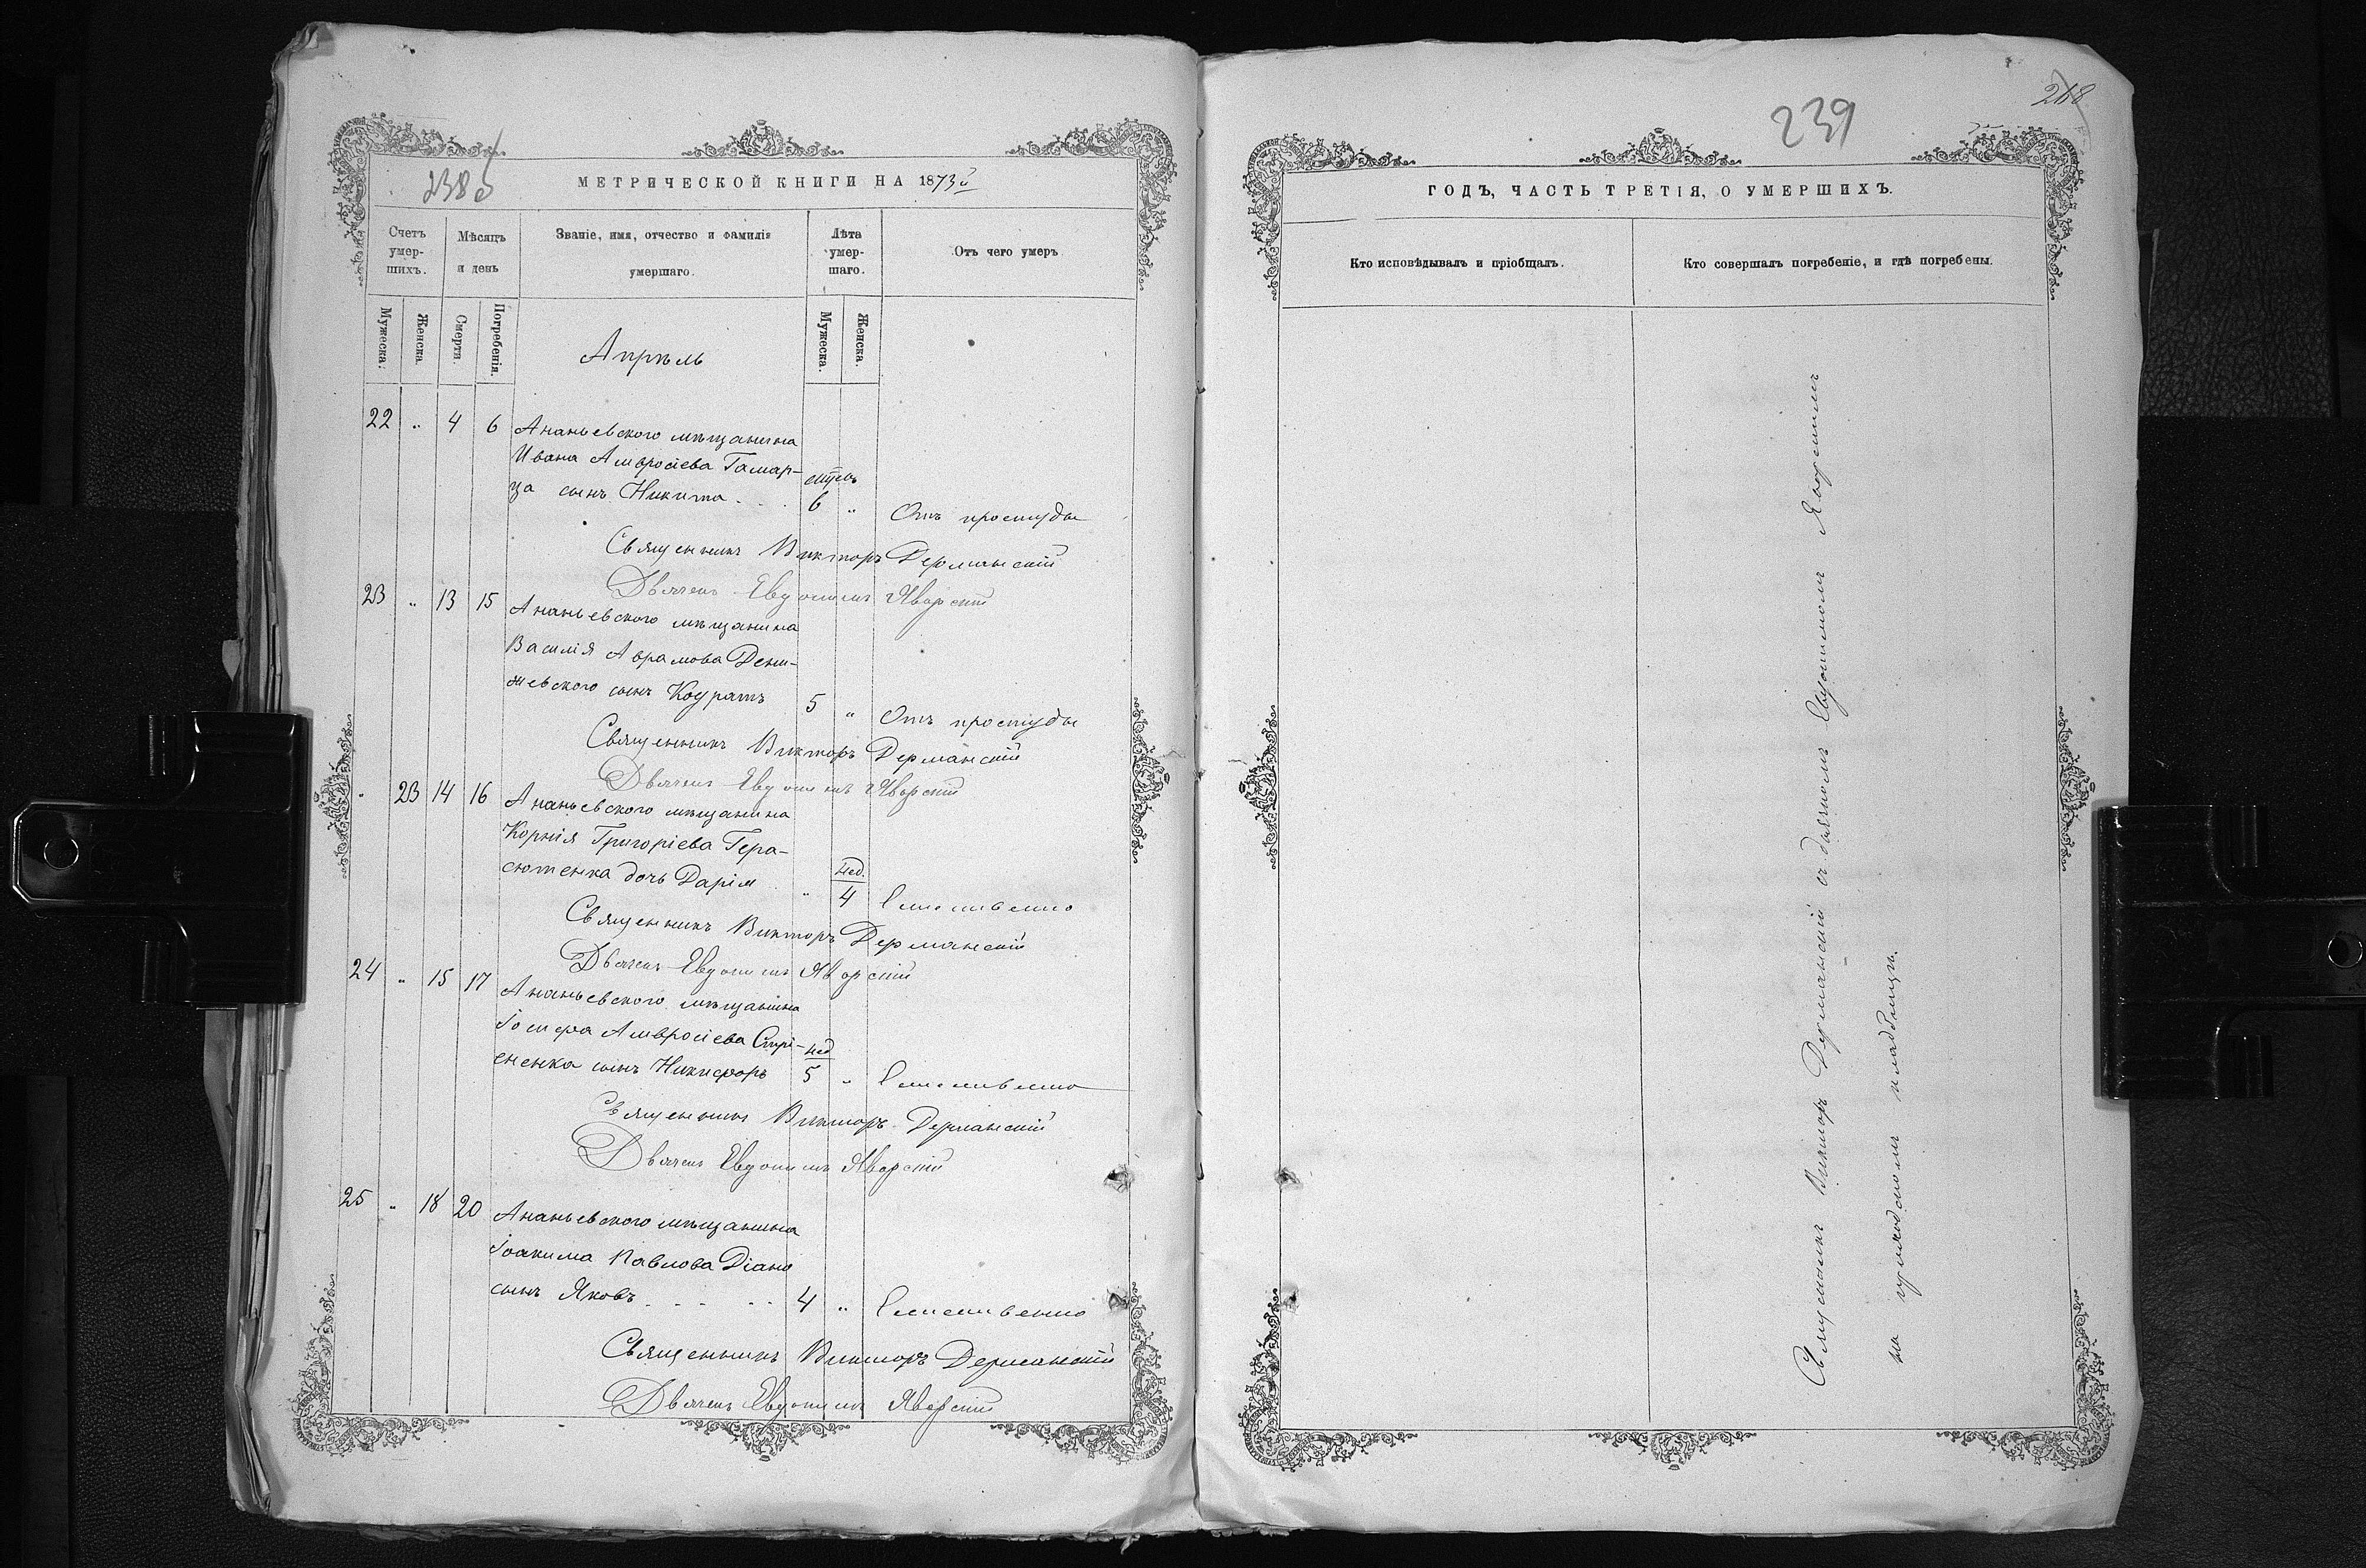 238об
МЕТРИЧЕСКОЙ КНИГИ НА 1873й
Счетъ умер-шихъ.
Мѣсяцъ и день
Званіе, имя, отчество и фамилія умершаго.
Лѣта умер-шаго.
Отъ чего умеръ
Мужеска.
Женска.
Смерти.
Погребенія.
Мужеска.
Женска.
Апрѣль
22 „ 4 6 Ананьевского мѣщанина
Ивана Амвросіева Гамар-
ца сынъ Никита 6 „ Отъ простуды
Священникъ Викторъ Дерманскій
Дьячекъ Евдокимъ Яворскій
23 „ 13 15 Ананьевского мѣщанина
Василія Аврамова Дени-
жевского сынъ Кодратъ 5 „ Отъ простуды
Священникъ Викторъ Дерманскій
Дьячекъ Евдокимъ Яворскій
„ 23 14 16 Ананьевского мѣщанина
Корнія Григоріева Гера-
сютенка дочь Дарія „ нед. 4 Естественно
Священникъ Викторъ Дерманскій
Дьячекъ Евдокимъ Яворскій
24 „ 15 17 Ананьевского мѣщанина
Іосифа Амвросіева
сынъ Никифоръ нед 5 „ Естественно
Священникъ Викторъ Дерманскій
Дьячекъ Евдокимъ Яворскій
25 „ 18 20 Ананьевского мѣщанина
Іоакима Павлова Діано
сынъ Яковъ 4 „ Естественно
Священникъ Викторъ Дерманскій
Дьячекъ Евдокимъ Яворскій
239
268
ГОДЪ, ЧАСТЬ ТРЕТІЯ, О УМЕРШИХЪ.
Кто исповѣдывалъ и пріобщалъ.
Кто совершалъ погребеніе, и гдѣ погребены.
Священникъ Викторъ Дерманскій съ дьячкомъ Евдокимомъ Яворскимъ
на приходскомъ кладбищѣ.